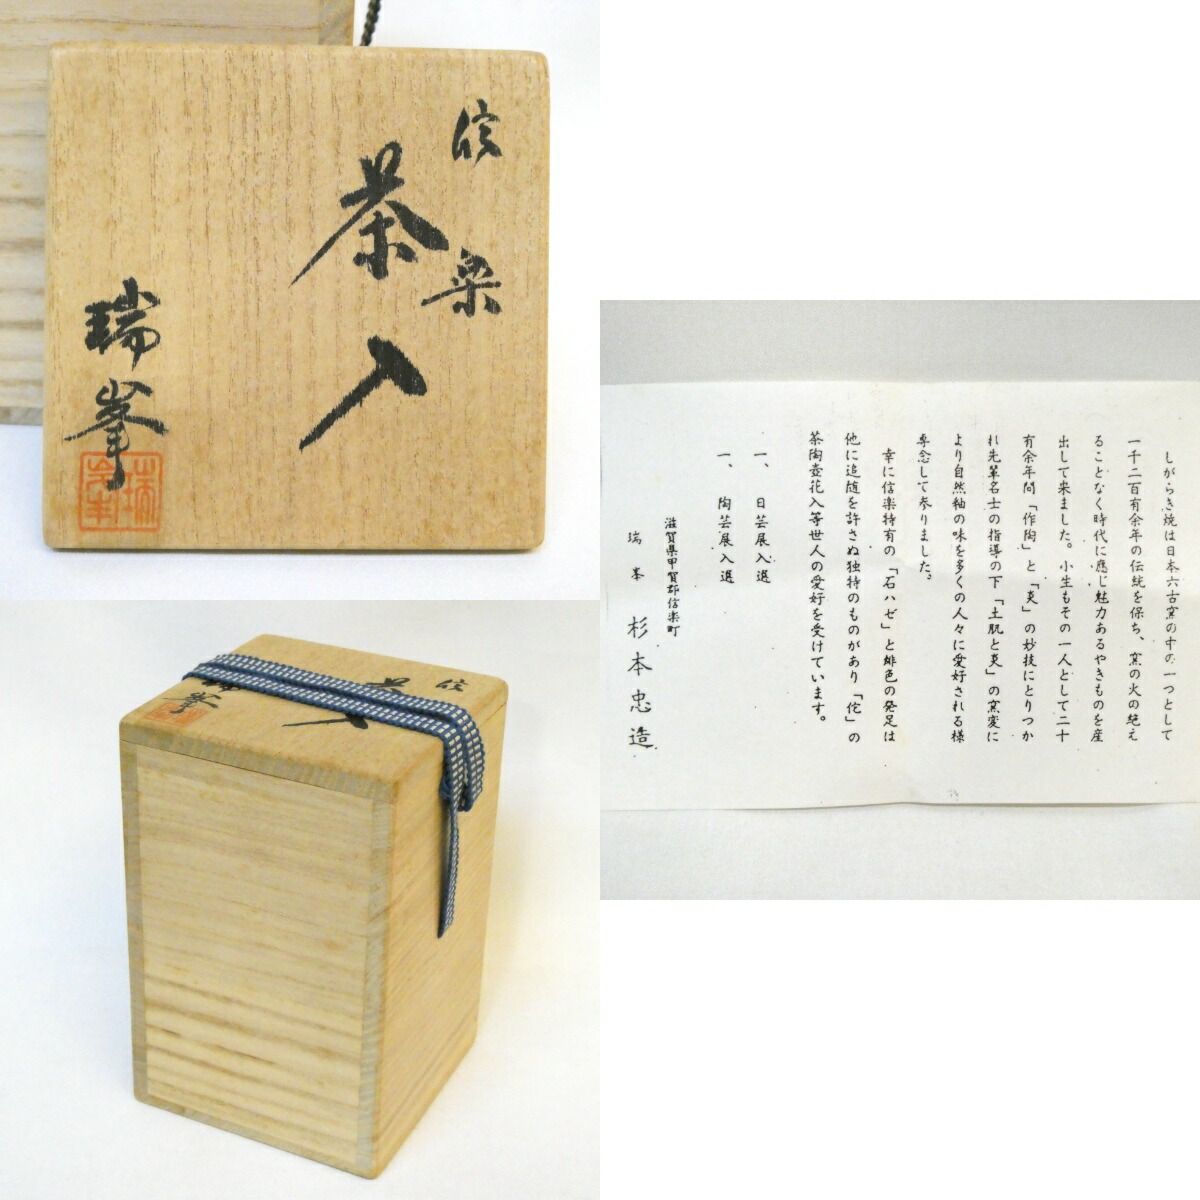 信楽
茶入
瑞峯
瑞峯
しがらき焼は日本六古窯の中の一つとして
一千二百有余年の伝統を保ち、窯の火の絶え
ることなく時代に應じ魅力あるやきものを産
出して来ました。小生もその一人として二十
有余年間「作陶」と「炎」の妙技にとりつか
れ先輩名士の指導の下「土肌と炎」の窯変に
より自然釉の味を多くの人々に愛好される様
専念して参りました。
幸に信楽特有の「石ハゼ」と緋色の発足は
他に追随を許さぬ独特のものがあり「佗」の
茶陶壺花入等世人の愛好を受けています。
一、日芸展入選
一、陶芸展入選
滋賀県甲賀郡信楽町
瑞峯 杉本忠造
信
茶入
瑞峯